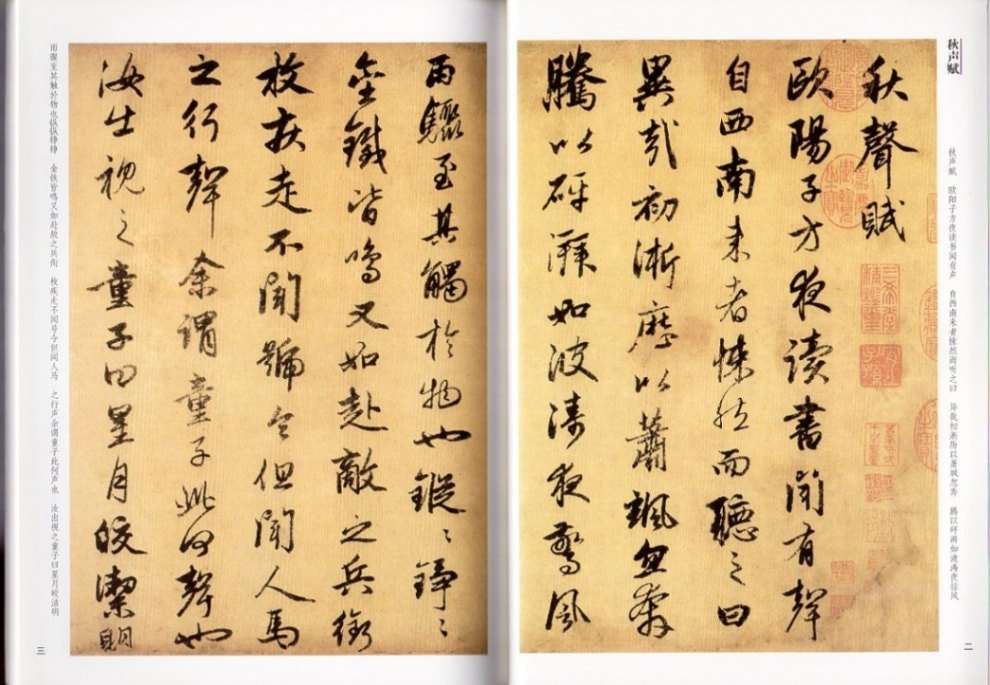 秋声赋
秋声赋 欧阳子方夜读书闻有声 自西南来者悚然而听之曰 异哉初淅沥以萧飒忽奔 腾以砰湃如波涛夜惊风
二
秋聲賦
歐陽子方夜讀書聞有聲
自西南来者悚然而聽之曰
異哉初淅瀝以蕭颯忽奔
騰以砰湃如波濤夜驚風
雨驟至其觸於物也鏦〻錚〻
金鐵皆鳴又如赴敵之兵銜
枚疾走不聞號令但聞人馬
之行聲余謂童子此何聲也
汝出視之童子曰星月皎潔明
雨骤至其触於物也鏦鏦铮铮 金铁皆鸣又如赴敌之兵衔 枚疾走不闻号令但闻人马 之行声余谓童子此何声也 汝出视之童子曰星月皎洁明
三